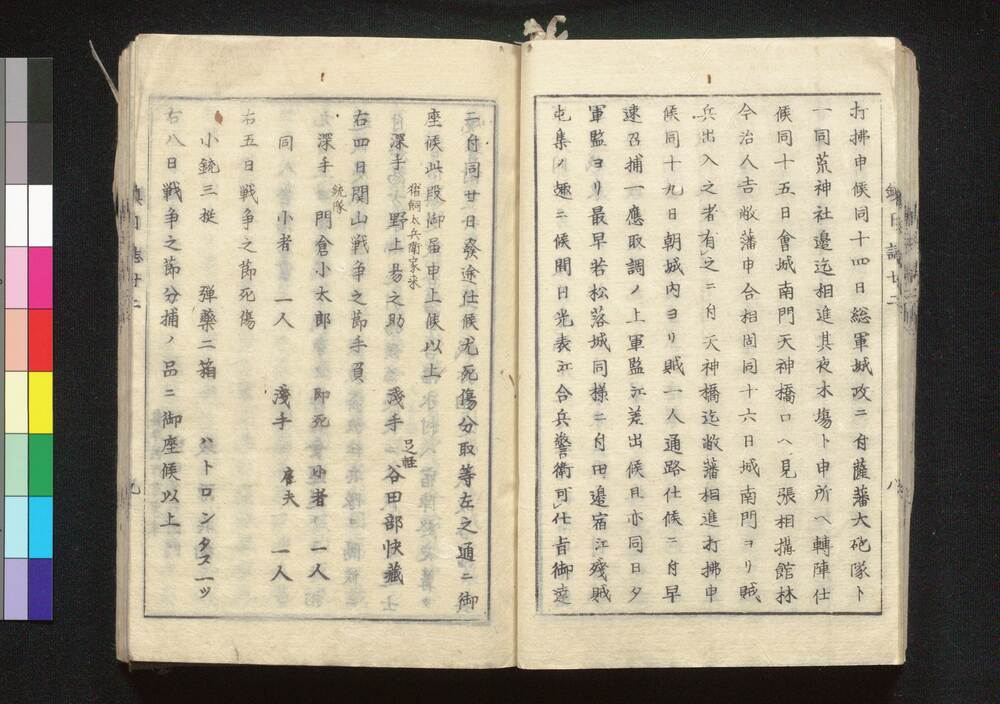 打拂申候同十四日総軍城攻ニ付薩藩大砲隊ト
一同荒神社邉迄相進其夜木塲ト申所ヘ轉陣仕
候同十五日會城南門天神橋口ヘ見張相搆館林
今治人吉敝藩申合相固同十六日城南門ヨリ賊
兵出入之者有之ニ付天神橋迄敝藩相進打拂申
候同十九日朝城内ヨリ賊一人通路仕候ニ付早
速召捕一應取調ノ上軍監江差出候且亦同日夕
軍監ヨリ最早若松落城同様ニ付田邉宿江残賊
屯集ノ趣ニ候間日光表江合兵警衛可仕旨御達
ニ付同廿日發途仕候尤死傷分取等左之通ニ御
座候此段御届申上候以上
猪飼太兵衛家来
深手 野上易之助 淺手 足軽 谷田部快藏
右四日関山戦争之節手負
銃隊
深手 門倉小太郎 即死 小者 一人
同 小者 一人 淺手 雇夫 一人
右五日戦争之節死傷
小銃三挺 弾藥二箱 ハトロンタス一ツ
右八日戦争之節分捕ノ品ニ御座候以上